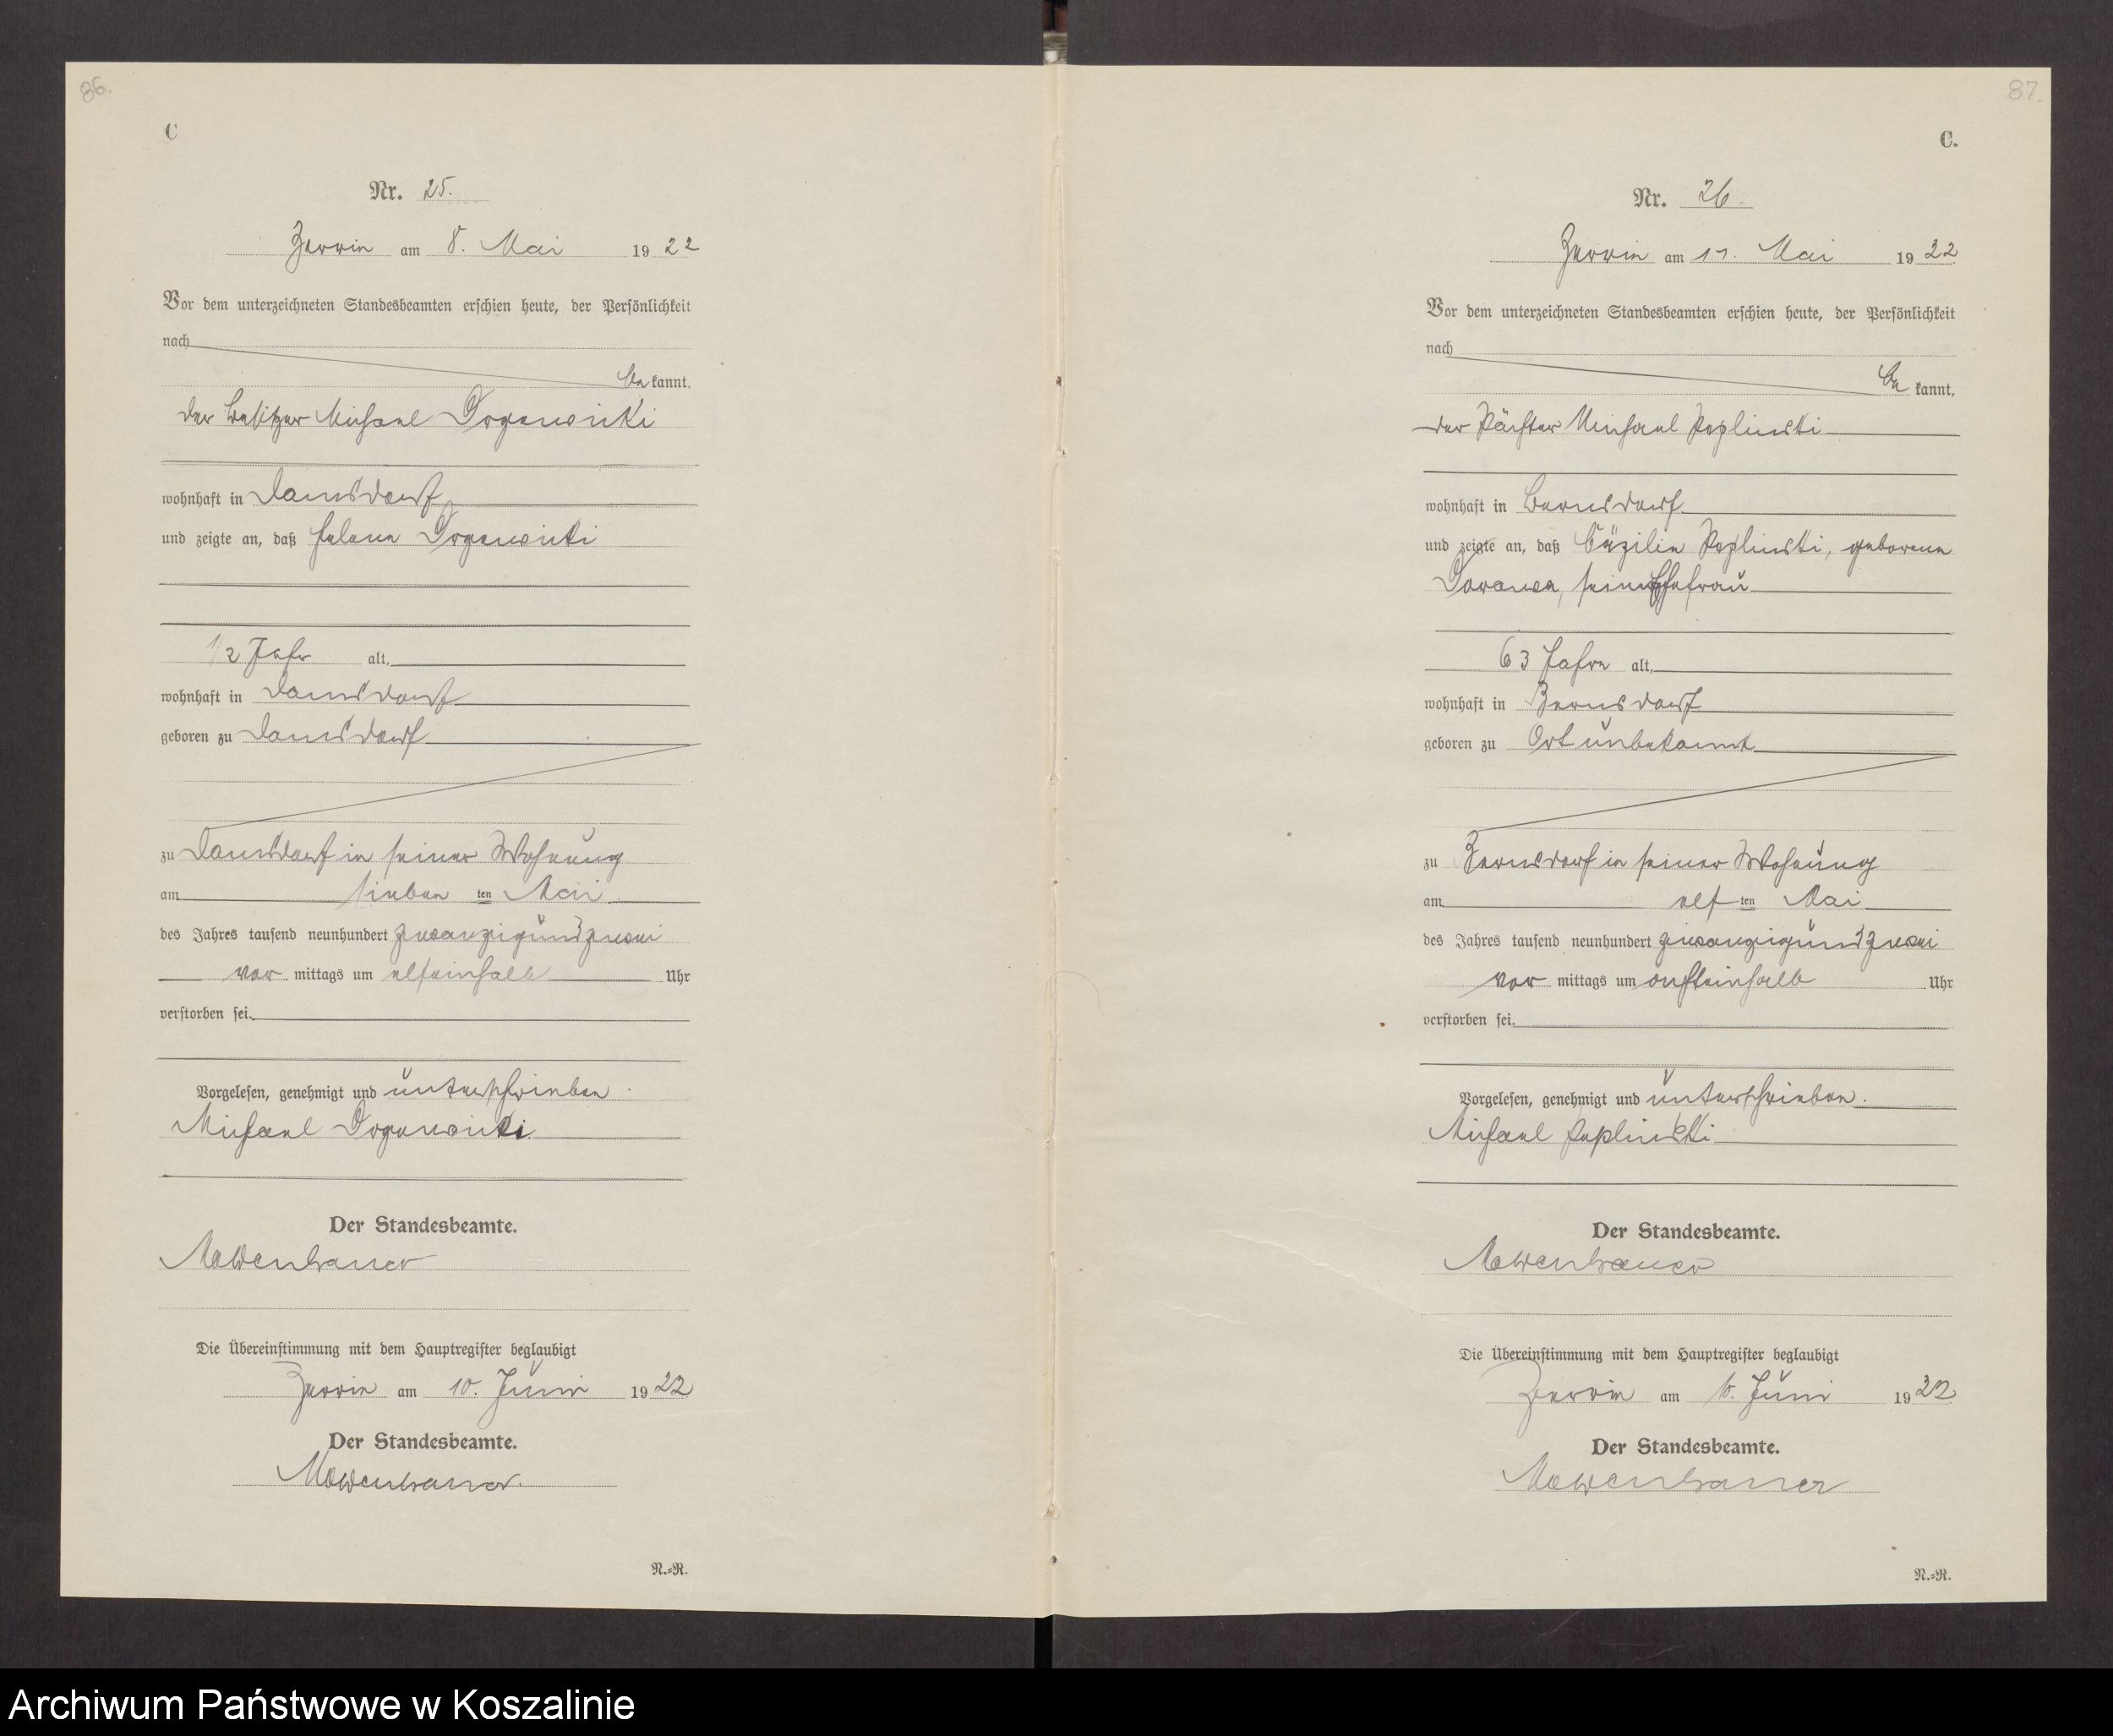 86.
C
Nr. 25.
Zerrin am 8. Mai 1922
Vor dem unterzeichneten Standesbeamten erschien heute, der Persönlichkeit
nach
be kannt,
der Besitzer Michael
wohnhaft in Damsdorf
und zeigte an, daß Helene
1/2 Jahr alt,
wohnhaft in Damsdorf
geboren zu Damsdorf
zu Damsdorf in seiner Wohnung
am sieben ten Mai
des Jahres tausend neunhundert zwanzigundzwei
vor mittags um elfeinhalb Uhr
verstorben sei.
Vorgelesen, genehmigt und unterschrieben.
Michael
Der Standesbeamte.
Die Übereinstimmung mit dem Hauptregister beglaubigt
Zerrin am 10. Juni 1922
Der Standesbeamte.
N.=R.
87.
C.
Nr. 26.
Zerrin am 11. Mai 1922
Vor dem unterzeichneten Standesbeamten erschien heute, der Persönlichkeit
nach
be kannt,
der Pächter Michael Peplinski
wohnhaft in Bernsdorf
und zeigte an, daß Cäzilie Peplinski, geborene
seine Ehefrau
63 Jahre alt,
wohnhaft in Bernsdorf
geboren zu Ort unbekannt
zu Bernsdorf in seiner Wohnung
am elf ten Mai
des Jahres tausend neunhundert zwanzigundzwei
vor mittags um Uhr
verstorben sei.
Vorgelesen, genehmigt und unterschrieben.
Michael Peplinski
Der Standesbeamte.
Die Übereinstimmung mit dem Hauptregister beglaubigt
Zerrin am 10. Juni 1922
Der Standesbeamte.
N.=R.
Archiwum Państwowe w Koszalinie